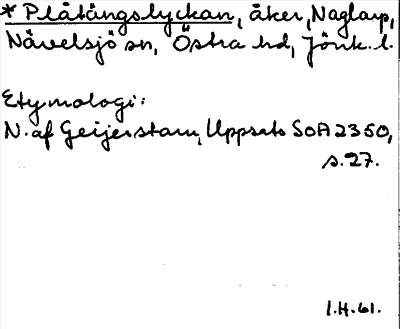 * Plåtängslyckan, åker, Naglarp,
Nävelsjö sn, Östra hd, Jönk. l.
Etymologi:
N. af Geijerstam, Uppsats SOA 2350,
s. 27.
I.H. 61.